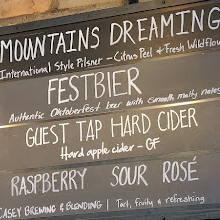 MOUNTAINS DREAMING
International Style Pilsner - Citrus Peel & Fresh Wildflow
FESTBIER
Authentic Oktoberfest beer with smooth, malty notes
GUEST TAP HARD CIDER
Hard apple cider - GF
RASPBERRY SOUR ROSÉ
CASEY BREWING & BLENDING | Tart, fruity & refreshing